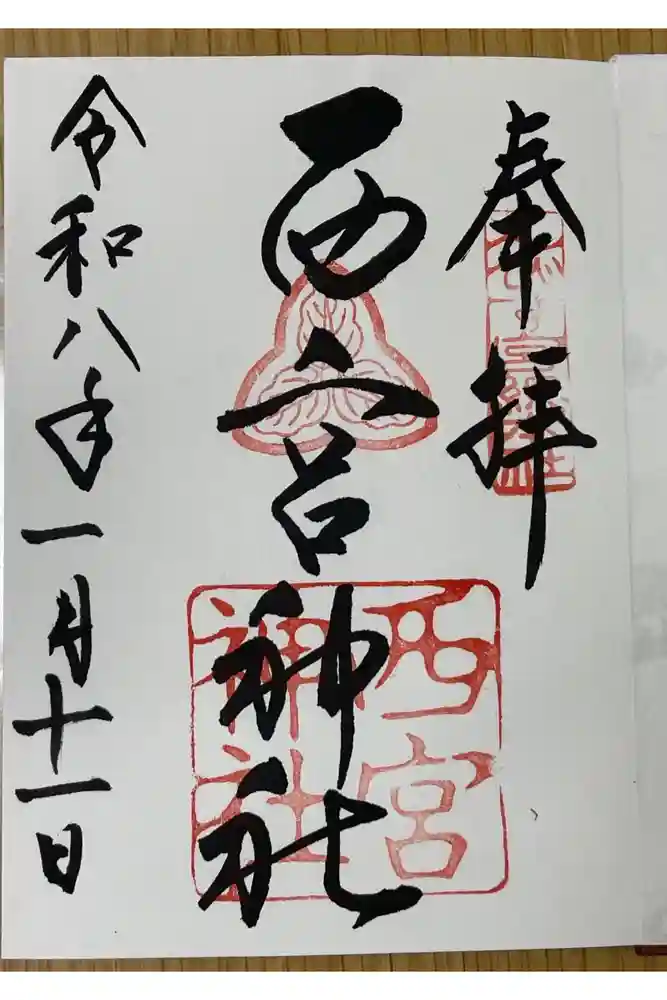 奉拝
西宮神社
令和八年一月十一日
西宮
神社